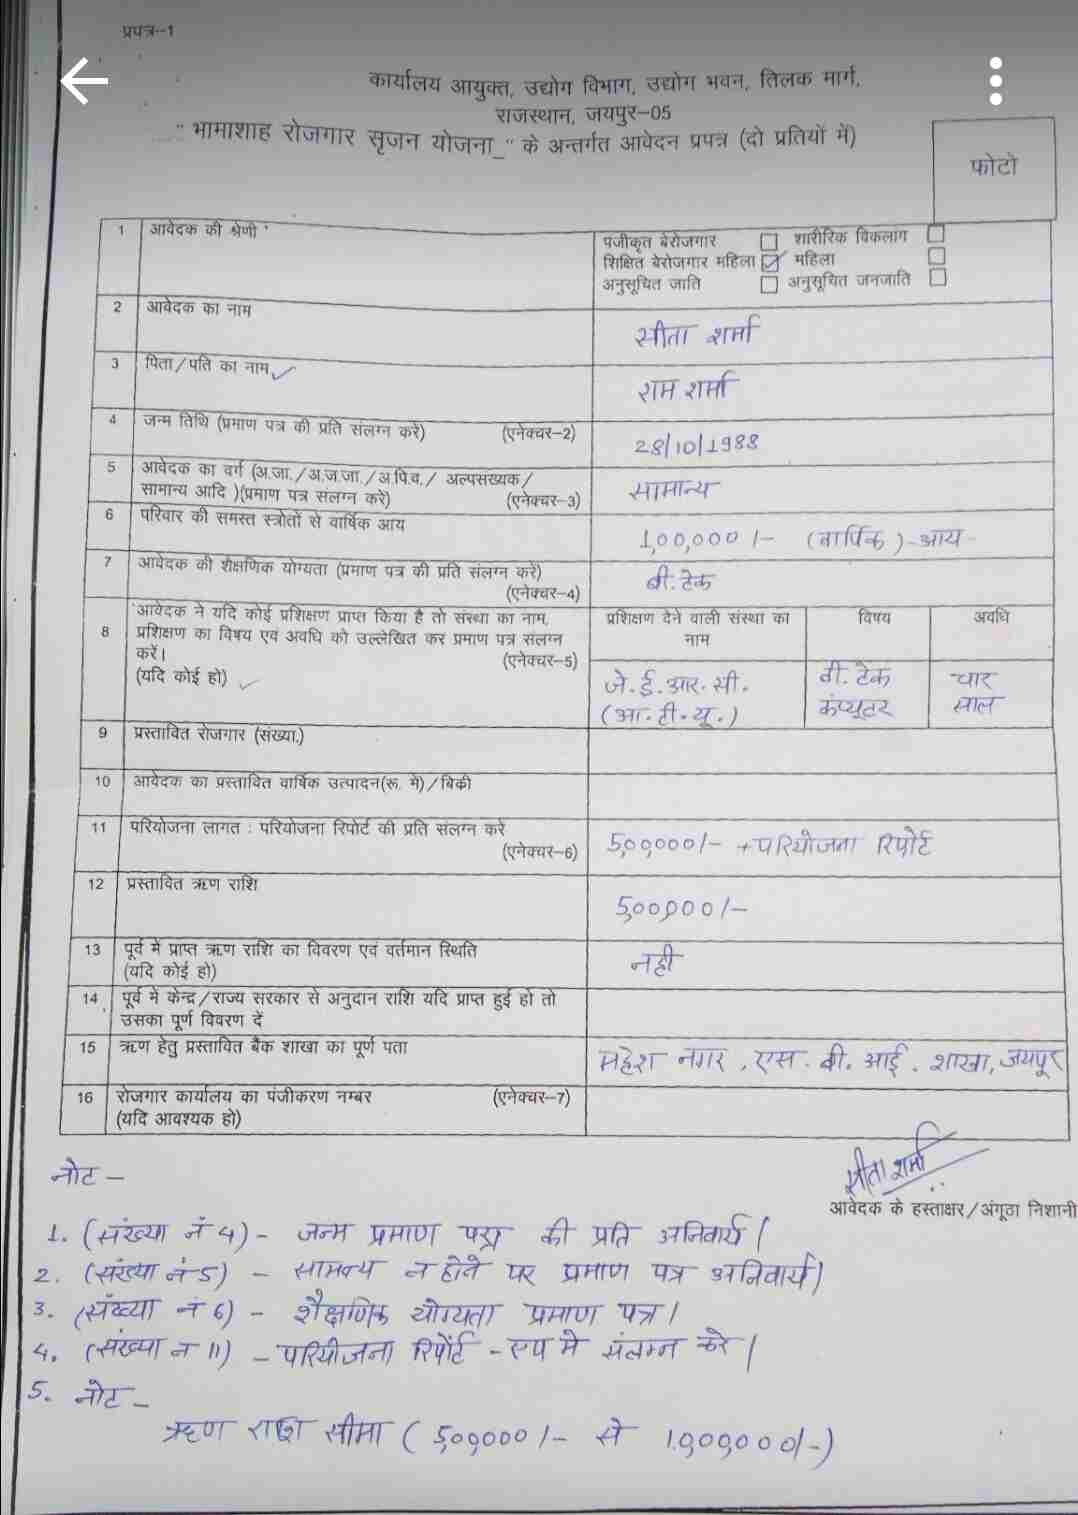 प्रपत्र–1
कार्यालय आयुक्त, उद्योग विभाग, उद्योग भवन, तिलक मार्ग,
राजस्थान, जयपुर–05
"भामाशाह रोजगार सृजन योजना_" के अन्तर्गत आवेदन प्रपत्र (दो प्रतियों में)
फोटो
1 आवेदक की श्रेणी
पंजीकृत बेरोजगार शारीरिक विकलांग
शिक्षित बेरोजगार महिला महिला
अनुसूचित जाति अनुसूचित जनजाति
2 आवेदक का नाम सीता शर्मा
3 पिता/पति का नाम राम शर्मा
4 जन्म तिथि (प्रमाण पत्र की प्रति संलग्न करें) (एनेक्चर–2) 28/10/1988
5 आवेदक का वर्ग (अ.जा./अ.ज.जा./अ.पि.व./ अल्पसंख्यक/
सामान्य आदि )(प्रमाण पत्र संलग्न करे) (एनेक्चर–3) सामान्य
6 परिवार की समस्त स्त्रोतों से वार्षिक आय 1,00,000/- (वार्षिक)-आय-
7 आवेदक की शैक्षणिक योग्यता (प्रमाण पत्र की प्रति संलग्न करें)
(एनेक्चर–4) बी.टेक
8 आवेदक ने यदि कोई प्रशिक्षण प्राप्त किया है तो संस्था का नाम,
प्रशिक्षण का विषय एवं अवधि को उल्लेखित कर प्रमाण पत्र संलग्न
करें। (एनेक्चर–5)
(यदि कोई हो)
प्रशिक्षण देने वाली संस्था का नाम विषय अवधि
जे.ई.आर.सी. बी.टेक चार
(आर.टी.यू.) कंप्यूटर साल
9 प्रस्तावित रोजगार (संख्या.)
10 आवेदक का प्रस्तावित वार्षिक उत्पादन(रू. में)/बिक्री
11 परियोजना लागत : परियोजना रिपोर्ट की प्रति संलग्न करे
(एनेक्चर–6) 5,00,000/- +परियोजना रिपोर्ट
12 प्रस्तावित ऋण राशि 5,00,000/-
13 पूर्व में प्राप्त ऋण राशि का विवरण एवं वर्तमान स्थिति
(यदि कोई हो) नही
14 पूर्व में केन्द्र/राज्य सरकार से अनुदान राशि यदि प्राप्त हुई हो तो
उसका पूर्ण विवरण दें
15 ऋण हेतु प्रस्तावित बैंक शाखा का पूर्ण पता महेश नगर, एस.बी.आई. शाखा, जयपुर
16 रोजगार कार्यालय का पंजीकरण नम्बर (एनेक्चर–7)
(यदि आवश्यक हो)
सीता शर्मा
आवेदक के हस्ताक्षर/अंगूठा निशानी
नोट –
1. (संख्या नं 4) - जन्म प्रमाण पत्र की प्रति अनिवार्य।
2. (संख्या नं 5) - सामन्य न होने पर प्रमाण पत्र अनिवार्य।
3. (संख्या नं 6) - शैक्षणिक योग्यता प्रमाण पत्र।
4. (संख्या न 11) - परियोजना रिपोर्ट - रूप मे संलग्न करे।
5. नोट -
ऋण राशि सीमा (5,00,000/- से 10,00,000/-)